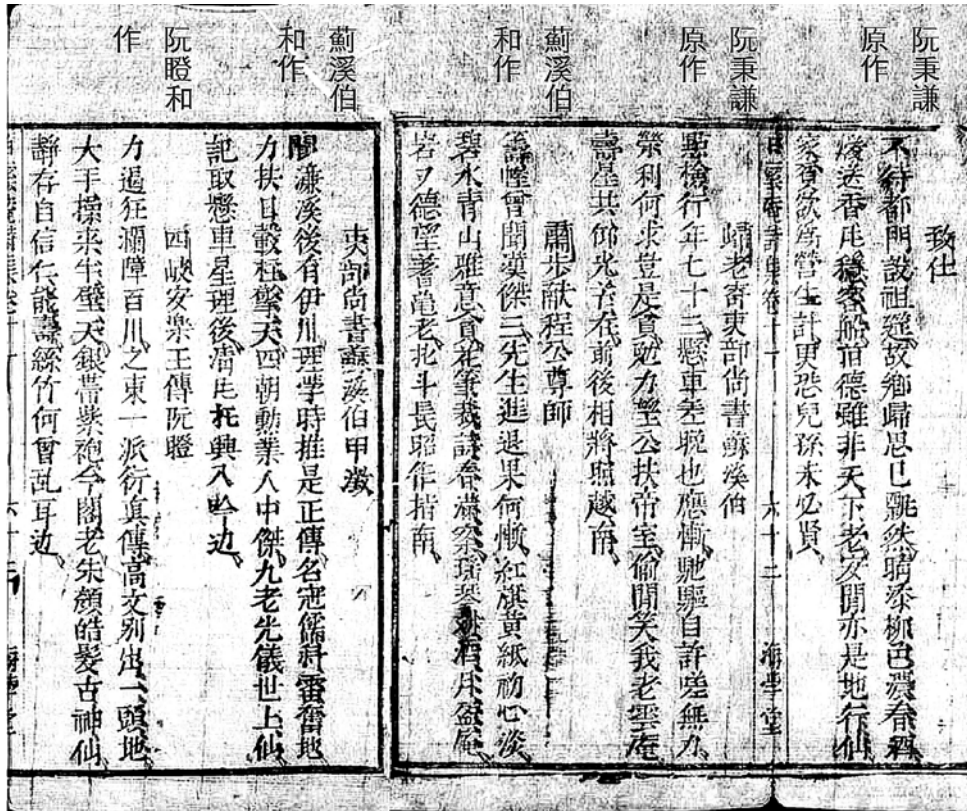 阮秉謙
原作
阮秉謙
原作
薊溪伯
和作
薊溪伯
和作
阮瞪和
作
致仕
不待都門設祖筵故鄉歸思已飄然晴添柳色濃春酒
送香風穩客船有德雖非天下老安閒亦是地行仙
家欲營生計更恐兒孫未必賢
白雲庵詩集卷十一 六十二 海學堂
歸老寄吏部尚書蘇溪伯
點檢行年七十三懸車差晚也應慚馳驅自許嗟無力
榮利何求豈是貪勉力公扶帝室偷閒笑我老雲庵
壽星共仰光芒在前後相將照越南
肅步献程公尊師
籌幄曾聞漢傑三先生進退果何慚紅旗黃紙初心淡
碧水青山雅意貪花筆裁詩春满案瑤琴酒月盈庵
岩〻德望蓍龜老北斗長昭作指南
吏部尚書蘇溪伯甲澂
濂溪後有伊川理學時推是正傳名冠儒科雷奮地
力扶日轂柱擎天四朝勳業人中傑九老先儀世上仙
記取懸車星理後清風托興入吟边
四岐安樂王傳阮瞪
力遏狂瀾障百川之東一派衍真傳高文别出一頭地
大手操来半壁天銀帶紫袍今閣老朱顏皓髮古神仙
靜存自信仁能壽絲竹何曾乱耳边